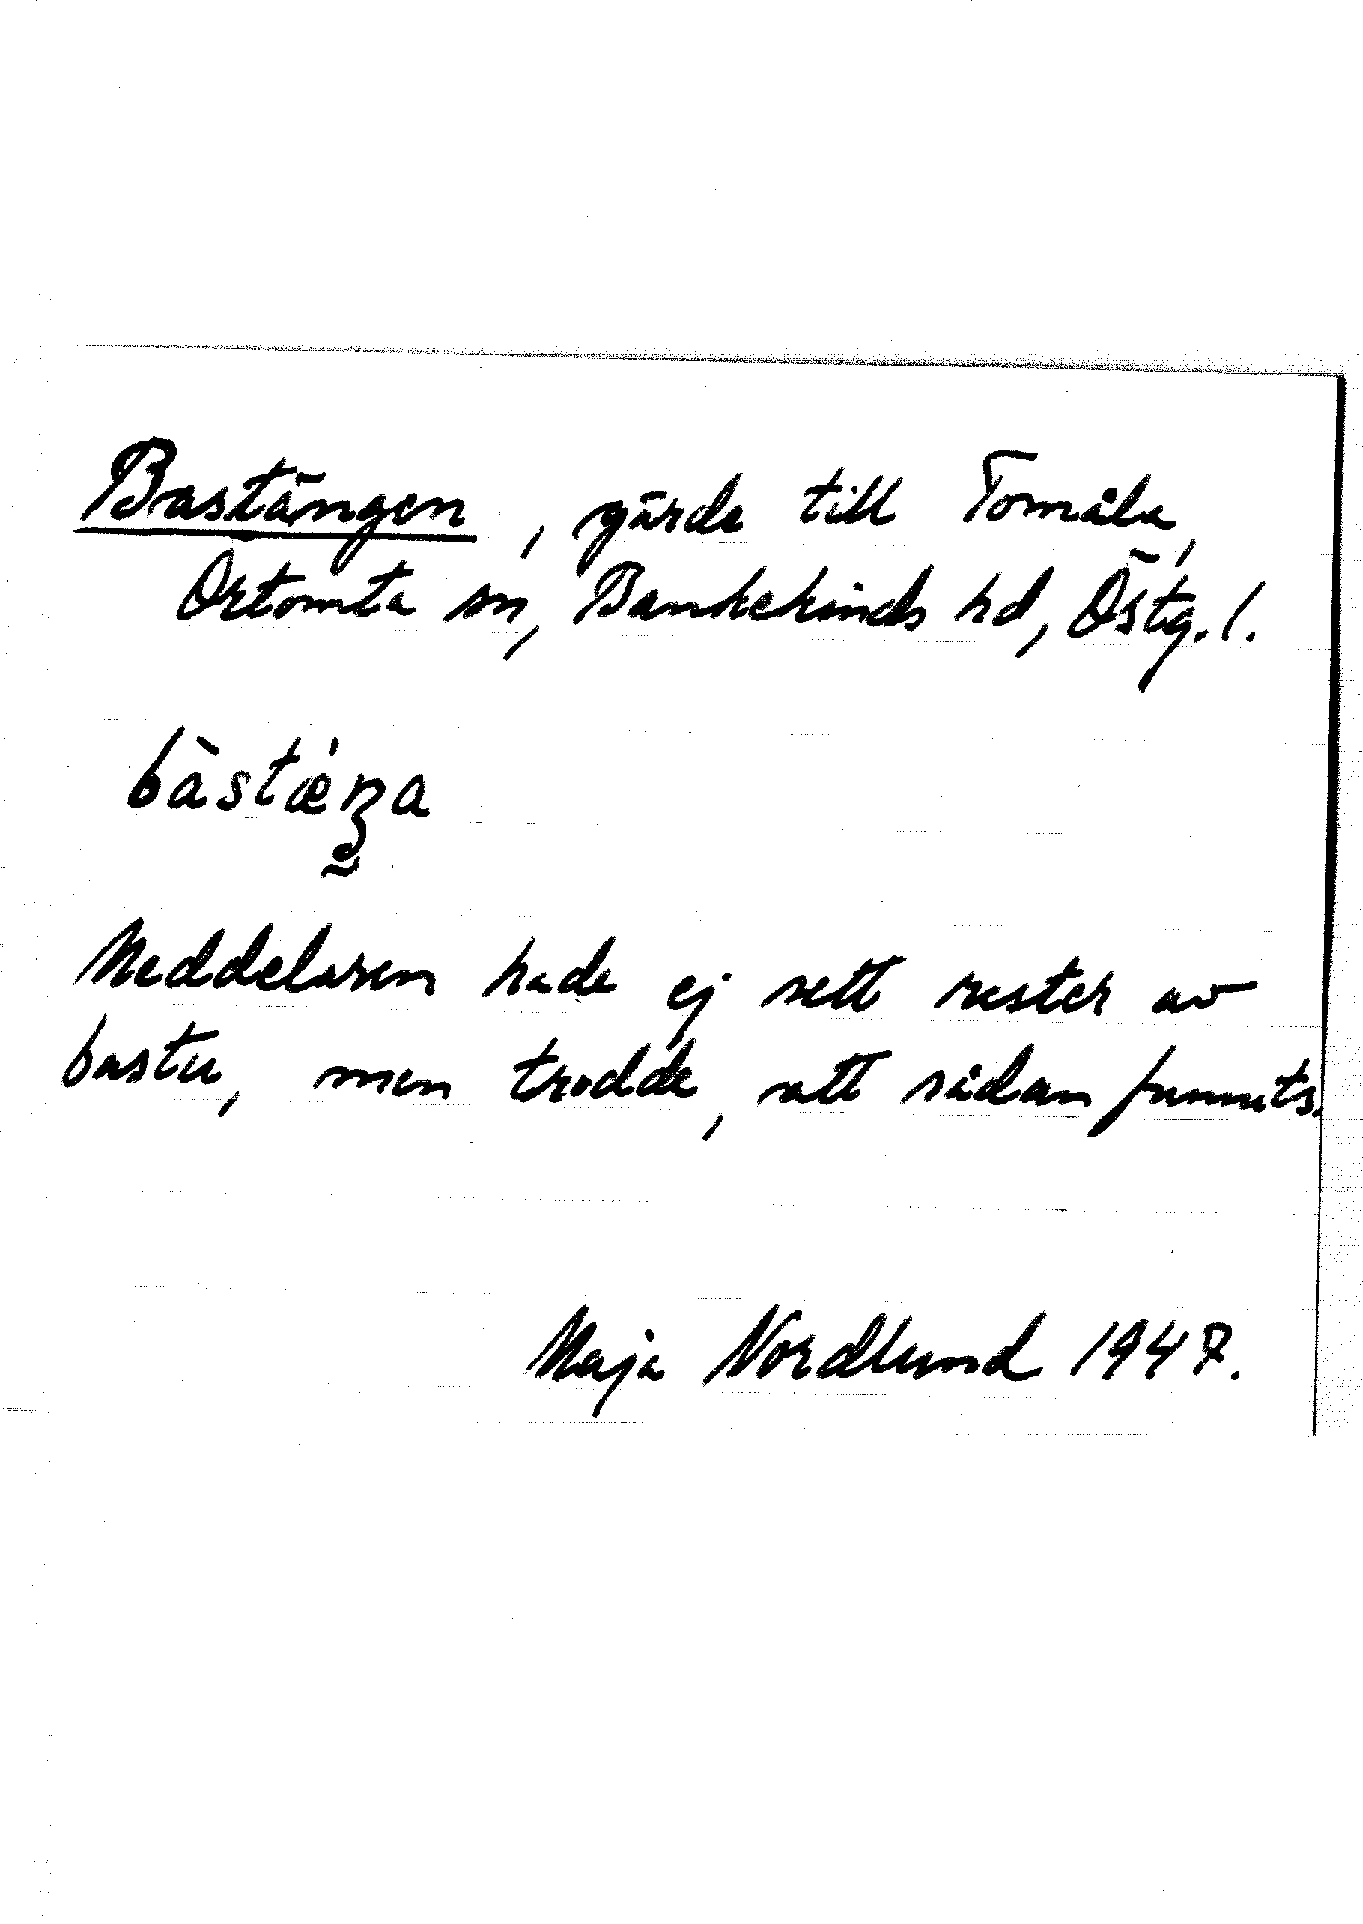 Bastängen, gärde till Tomåla,
Örtomta sn, Bankekinds hd, Östg. l.
bàstǽŋa
Meddelaren hade ej sett rester av
bastu, men trodde, att sådan funnits.
Maja Nordlund 1947.